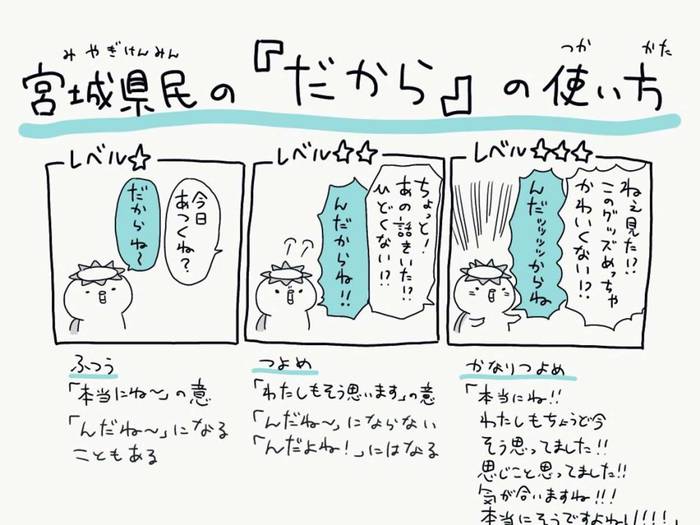 みやぎけんみん つか かた
宮城県民の『だから』の使い方
レベル☆
今日
あつくね?
だからね〜
レベル☆☆
ちょっと!
あの話きいた!?
ひどくない!?
んだからね!!
レベル☆☆☆
ねぇ見た!?
このグッズめっちゃ
かわいくない!?
んだッッッッからね
ふつう
「本当にね〜」の意
「んだね〜」になる
こともある
つよめ
「わたしもそう思います」の意
「んだね〜」にならない
「んだよね!」にはなる
かなりつよめ
「本当にね!!
わたしもちょうど今
そう思ってました!!
思じこと思ってました!!
気が合いますね!!!
本当にそうですよね!!!!